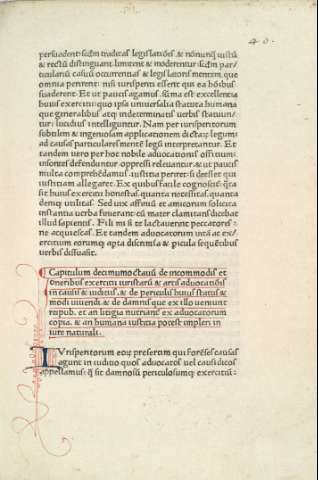 40.
persuaderent: scd̃m traditas legislatiões. & nõnunq̃ iustũ
& rectũ distinguant. limitent & moderentur: scd̃m par/
ticulariũ casuũ occurrentias & legislatoris mentem. que
omnia perirent: nisi iurisperiti essent qui ea hõibus
suaderent. Et ut paucis agam. summa est excellentia
huius exercitii: quo ipsa uniuersalia statuta humana
que generalibus atq indeterminatis uerbis statuun/
tur: lucidius intelliguntur. Nam per iurisperitorum
subtilem & ingeniosam applicationem dictarum legum
ad causas particulares mentẽ legis interpretantur. Et
tandem uero per hoc nobile aduocationis officium:
insontes defenduntur. oppressi releuantur. & ut paucis
multa comprehẽdamus. iustitia periret: si deesset qui
iustitiam allegaret. Ex quibus facile cognoscis: q̃ta
sit huius exercitii honestas. quanta necessitas. quanta
demq utilitas. Sed uix affinis et amicorum solicita
instantia uerba finierant: cũ mater clamitans dicebat
illud sapientis. Fili mi si te lactauerint peccatores:
ne acquiescas. Et tandem aduocatorum uita ac exer/
citium eorumq aptã discrimina & picula sequẽtibus
uerbis dissuasit.
Capitulum decimumoctauũ de incommodis et
oneribus exercitii iuristarũ & artis aduocatiõis
in causis & iuditiis. & de periculis huius status &
modi uiuendi. & de damnis que ex illo ueniunt
reipub. et an litigia nutriant̃ ex aduocatorum
copia. & an humana iustitia potest impleri in
iure naturali.
IUrisperitorum eoq presertim qui forẽses causas
agunt in iuditio quos aduocatos uel causidicos
appellamus: q̃ sit damnosũ periculosumq exercitiũ: